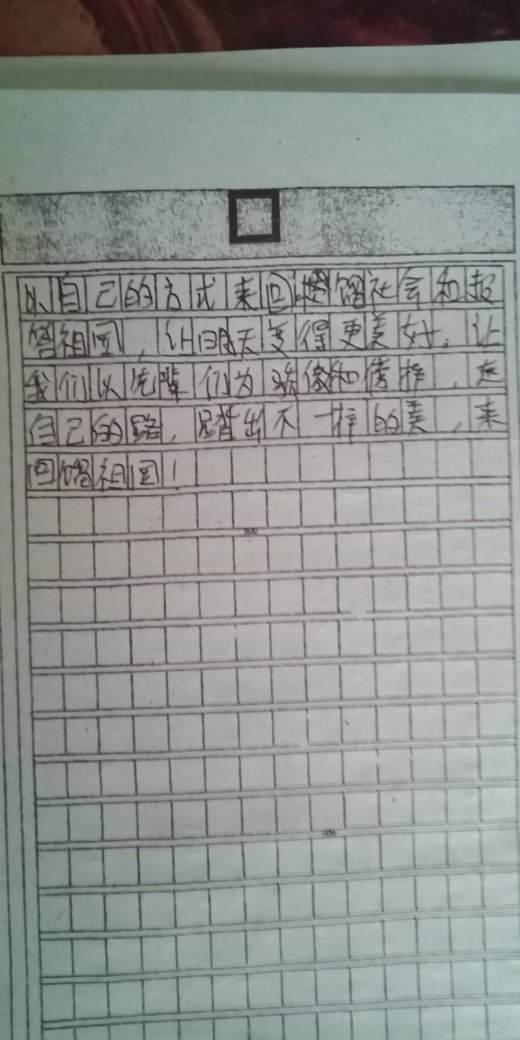 以自己的方式来回馈社会和报
答祖国，让明天变得更美好。让
我们以先辈们为偶像和榜样，走
自己的路，踏出不一样的美，来
回馈祖国！